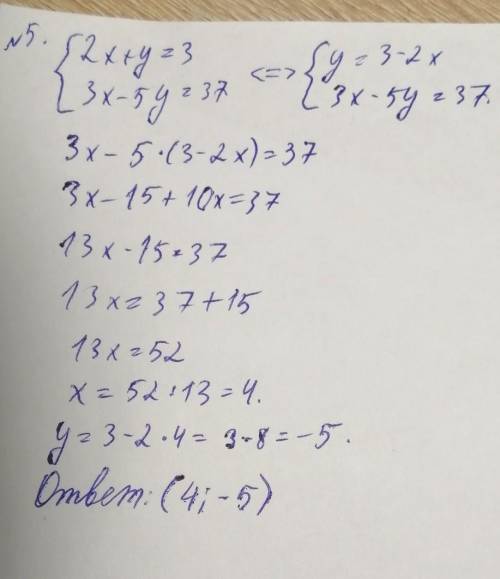 №5. { 2x+y=3 <=> { y=3-2x
3x-5y=37 3x-5y=37.
3x-5·(3-2x)=37
3x-15+10x=37
13x-15=37
13x=37+15
13x=52
x=52:13=4.
y=3-2·4=3-8=-5.
Ответ: (4;-5)